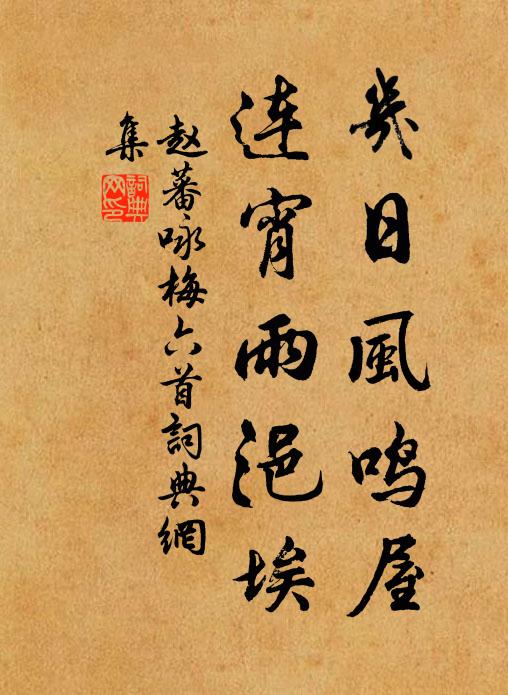 幾日風鸣屋
连宵雨浥埃
赵蕃咏梅六首詞典網
集
詞典
网印